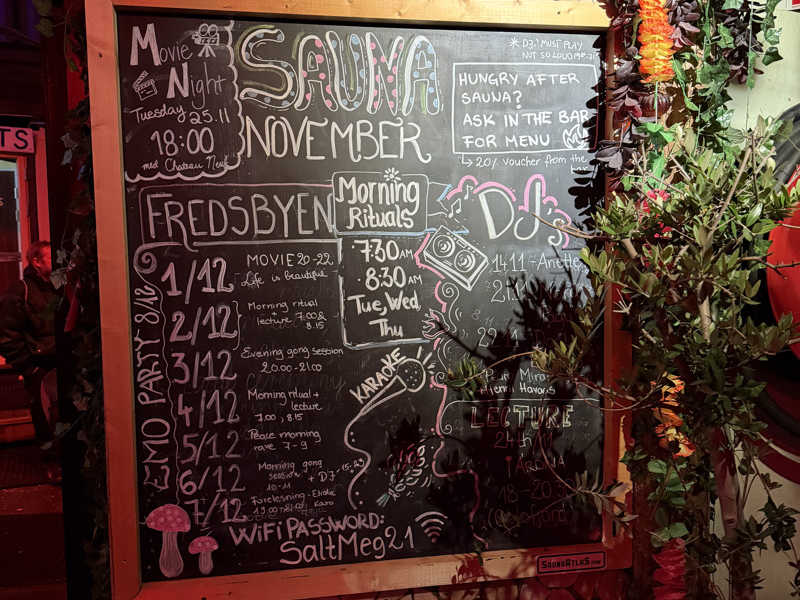 Movie
Night
Tuesday 25.11
18:00
med Chateau Neuf
SAUNA
NOVEMBER
* DJ's MUST PLAY
NOT SO LOUD
HUNGRY AFTER
SAUNA?
ASK IN THE BAR
FOR MENU
↳ 20% voucher from the
bar
FREDSBYEN
EMO PARTY 8/12
1/12 MOVIE 20-22
Life is beautiful
2/12 Morning ritual
+ lecture 7.00 &
8.15
3/12 Evening gong session
20.00-21.00
4/12 Morning ritual +
lecture
7.00, 8.15
5/12 Peace morning
rave 7-9
6/12 Morning gong
session + DJ
10-11
7/12 Forelesning
Morning
Rituals
7:30 AM
8:30 AM
Tue, Wed,
Thu
KARAOKE
DJs
14.11 -
21.11
Mira
LECTURE
WiFi PASSWORD:
SaltMeg21
SAUNATLAS.com
TS